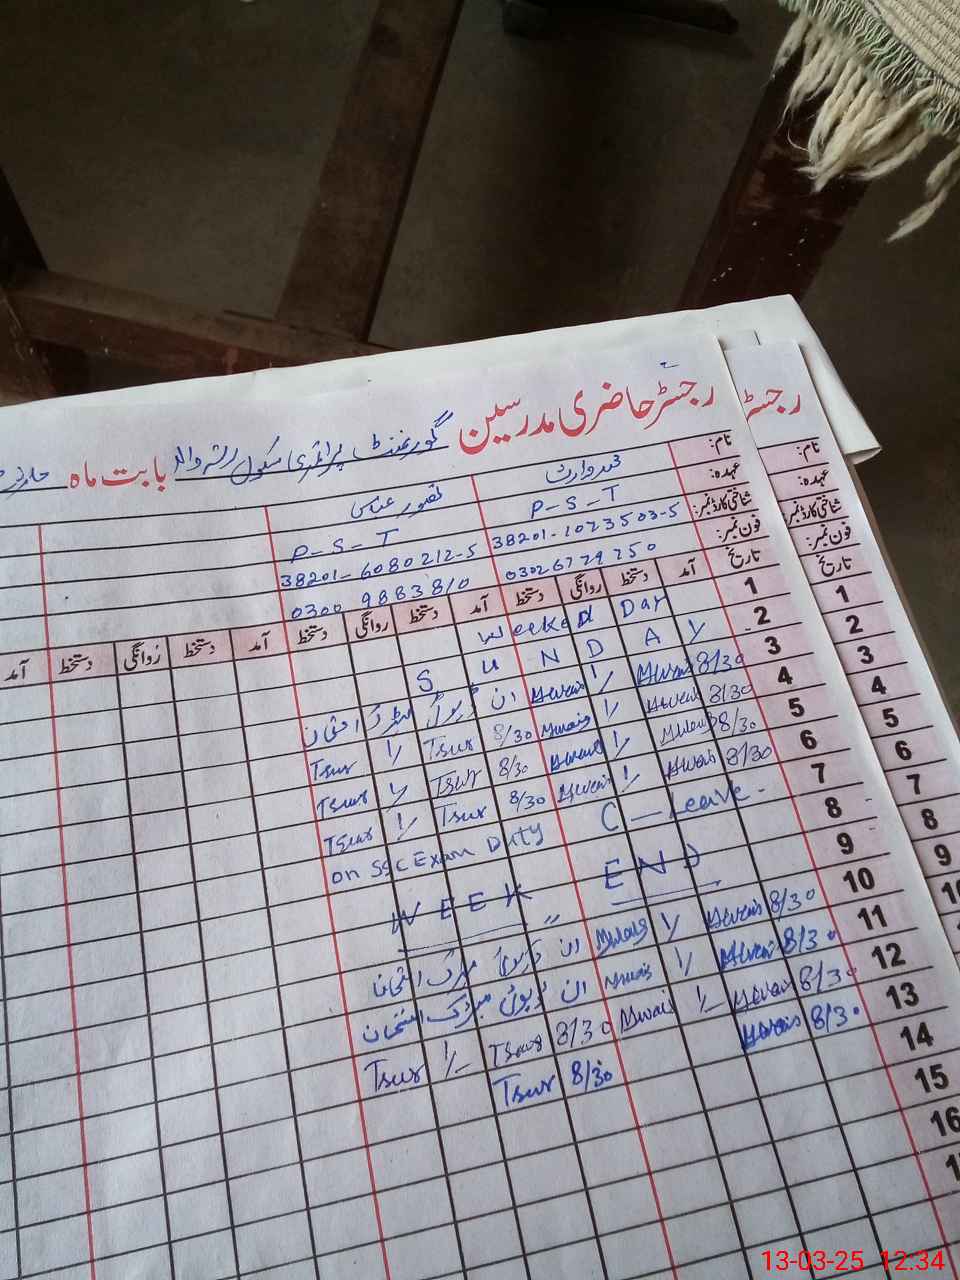 رجسٹر حاضری مدرسین گورنمنٹ پرائمری سکول بابت ماہ مارچ
رجسٹر
نام: محمد وارث تصور عباس
عہدہ: P-S-T P-S-T
شناختی کارڈ نمبر: 38201-1023503-5 38201-6080212-5
فون نمبر: 0300 9883810
تاریخ آمد دستخط روانگی دستخط آمد دستخط روانگی دستخط آمد دستخط روانگی دستخط آمد
1 Day
2 S U N D A Y
3 8/30 1/ ان ڈیوٹی میٹرک امتحان
4 8/30 1/ 8/30 Tsur 1/ Tsur
5 8/30 1/ 8/30 Tsur 1/ Tsur
6 8/30 1/ 8/30 Tsur 1/ Tsur
7 C-Leave. on SSC Exam Duty
8 WEEK END
9 "
10 8/30 1/ ان ڈیوٹی میٹرک امتحان
11 8/30 1/ ان ڈیوٹی میٹرک امتحان
12 8/30 1/- 8/30 Tsur 1/- Tsur
13 8/30 8/30 Tsur
14
15
16
نام:
عہدہ:
شناختی کارڈ نمبر:
فون نمبر:
تاریخ
1
2
3
4
5
6
7
8
9
10
11
13-03-25 12:34